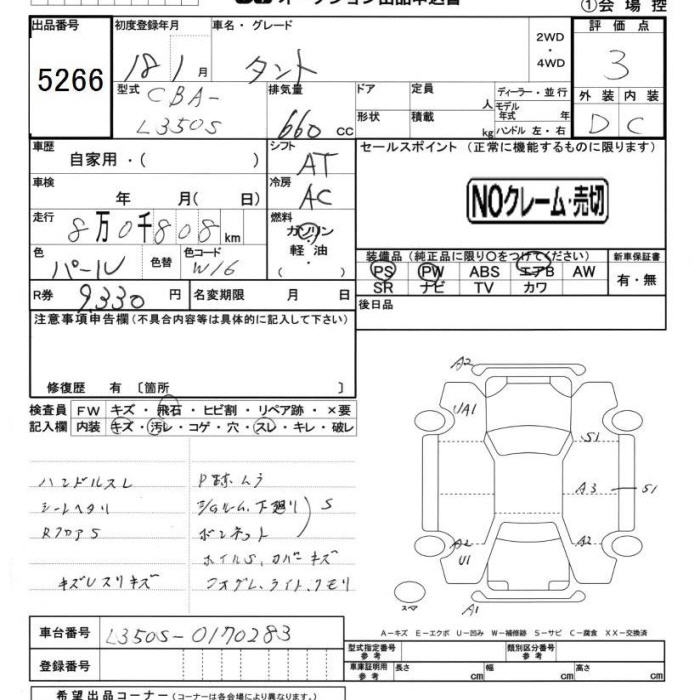 オークション出品申込書
①会場控
出品番号
5266
初度登録年月
18 1 月
車名・グレード
タント
2WD
・
4WD
評価点
3
外装 内装
D C
型式
CBA-
L350S
排気量
660 cc
ドア
定員
人
形状
積載
kg
ディーラー・並行
モデル
年式 年
ハンドル 左・右
車歴
自家用・( )
シフト
AT
セールスポイント(正常に機能するものに限ります)
NOクレーム・売切
車検
年 月( 日)
冷房
AC
走行
8万0千808km
燃料
ガソリン
軽油
・( )
色
パール
色替
色コード
W16
装備品(純正品に限り○をつけてください)
PS PW ABS エアB AW
SR ナビ TV カワ
新車保証書
有・無
R券 9,330 円
名変期限 月 日
後日品
注意事項申告欄(不具合内容等は具体的に記入して下さい)
修復歴 有 〔箇所 〕
検査員 FW キズ・飛石・ヒビ割・リペア跡・×要
記入欄 内装 キズ・汚レ・コゲ・穴・スレ・キレ・破レ
ハンドルスレ
シートヘタリ
RフロアS
キズレスリキズ
下廻り S
ボンネット
ホイルS、カバーキズ
フォグレ、ライト、クモリ
A2
UA1
S1
A3
S1
A2
U1
A2
スペア
A1
A-キズ E-エクボ U-凹み W-補修跡 S-サビ C-腐食 XX-交換済
車台番号 L350S-0170283
登録番号
型式指定番号
参考
類別区分番号
参考
車庫証明用
参考
長さ cm 幅 cm 高さ cm
希望出品コーナー(コーナーは各会場により異なります。)